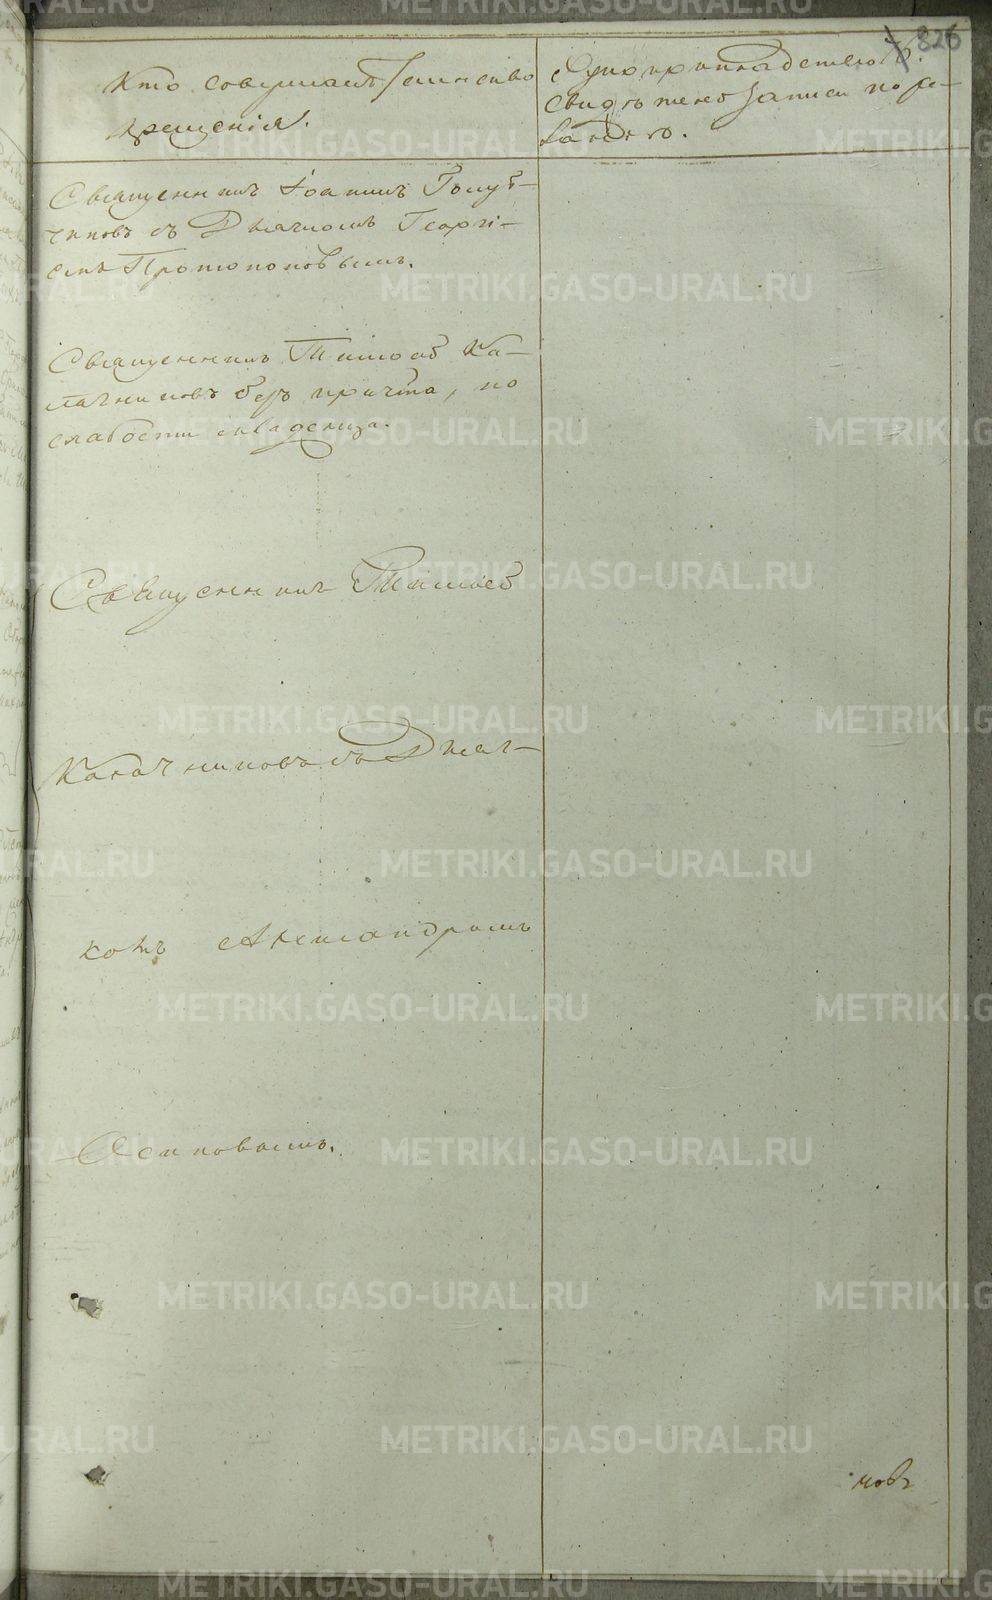 826
Кто совершалъ таинство
крещенія.
Рукоприкладство
свидѣтелей записи по же-
ланію.
Священникъ Іоаннъ Голуб-
чиковъ съ Дьячкомъ Георгі-
емъ Протопоповымъ.
Священникъ Тимоѳей Ка-
лачниковъ безъ причта, по
слабости младенца.
Священникъ Тимоѳей
Калачниковъ съ Дьяч-
комъ Александромъ
Осиповымъ.
новъ
METRIKI.GASO-URAL.RU